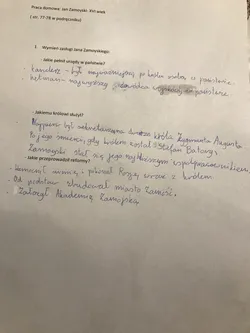 Praca domowa: Jan Zamoyski. XVI wiek
( str. 77-79 w podręczniku)
1. Wymień zasługi Jana Zamoyskiego:
- Jakie pełnił urzędy w państwie?
· kanclerz - był najważniejszą po królu osobą w państwie.
hetman - najwyższy dowódca w państwie
- Jakiemu królowi służył?
· Najpierw był sekretarzem króla Zygmunta Augusta
Po jego śmierci, gdy królem został Stefan Batory,
Zamoyski stał się jego najbliższym współpracownikiem
- Jakie przeprowadził reformy?
· Zmienił armię, pokonał Rosję wraz z królem.
· Od podstaw zbudował miasto Zamość.
· Założył Akademię Zamojską